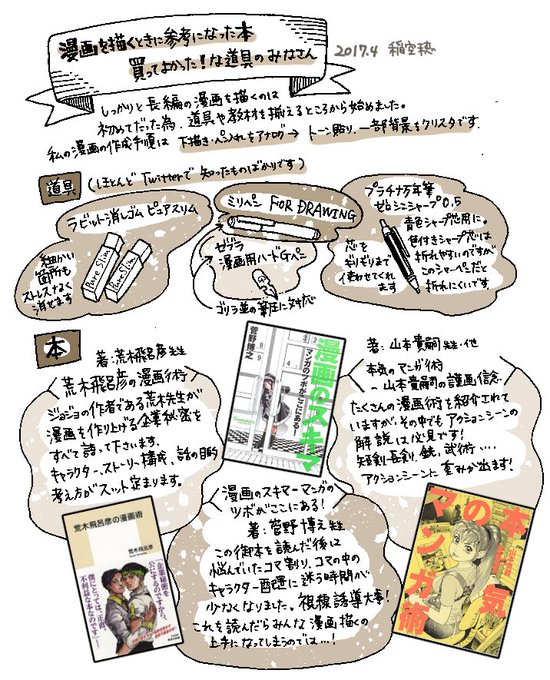 漫画を描くときに参考になった本
買ってよかった!な道具のみなさん
2017.4 稲空穂
しっかりと長編の漫画を描くのは
初めてだった為、道具や教材を揃えるところから始めました。
私の漫画の作成手順は 下描き・ペン入れをアナログ → トーン貼り、一部背景をクリスタです。
道具
(ほとんどTwitterで知ったものばかりです)
ラビット消しゴム ピュアスリム
細かい
箇所も
ストレスなく
消せます
Pure Slim
Pure Slim
ミリペン FOR DRAWING
ゼブラ
漫画用ハードGペン
ゴリラ並の筆圧に対応
プラチナ万年筆
ゼロシンシャープ0.5
青色シャープ芯用に。
色付きシャープ芯は
折れやすいのですが
このシャーペンだと
折れにくいです
芯を
ギリギリまで
使わせてくれ
ます
本
著:荒木飛呂彦先生
荒木飛呂彦の漫画術
ジョジョの作者である荒木先生が
漫画を作り上げる企業秘密を
すべて語って下さいます。
キャラクター、ストーリー構成、話の
考え方がスッと定まります。
漫画のスキマ
マンガのツボがここにある!
菅野博之
著:山本貴嗣先生・他
本気のマンガ術
-山本貴嗣の謹画信念
たくさんの漫画術を紹介されて
いますが、その中でもアクションシーンの
解説は必見です!
短剣・長剣、銃、武術…。
アクションシーンに重みが出ます!
漫画のスキマ-マンガの
ツボがここにある!
著:菅野博之先生
この御本を読んだ後は
悩んでいたコマ割り、コマの中の
キャラクター配置に迷う時間が
少なくなりました。視線誘導大事!
これを読んだらみんな漫画描くの
上手になってしまうのでは…!
荒木飛呂彦の漫画術
荒木飛呂彦
「企業秘密を
公にするのですから、
僕にとっては、正直、
不利益な本なのです」
本気の
マンガ術